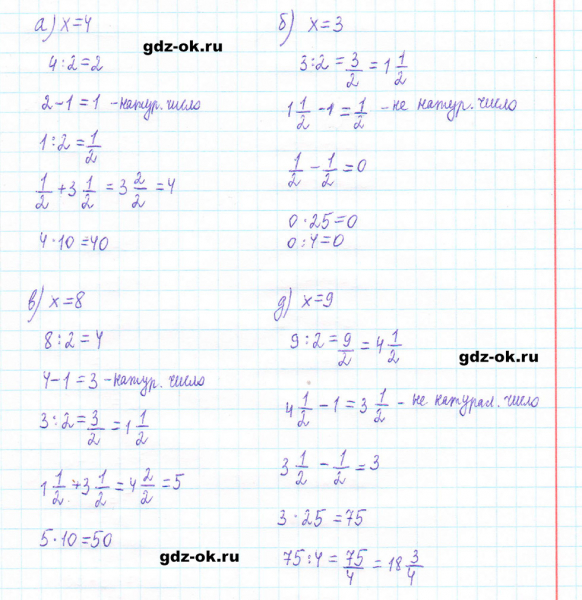 а) x=4
gdz-ok.ru
4:2=2
2-1=1 -натур. число
1:2=1/2
1/2+3 1/2=3 2/2=4
4·10=40
б) x=3
3:2=3/2=1 1/2
1 1/2-1=1/2 -не натур. число
1/2-1/2=0
0·25=0
0:4=0
в) x=8
8:2=4
4-1=3 -натур. число
3:2=3/2=1 1/2
1 1/2+3 1/2=4 2/2=5
5·10=50
gdz-ok.ru
д) x=9
9:2=9/2=4 1/2
gdz-ok.ru
4 1/2-1=3 1/2 - не натурал. число
3 1/2-1/2=3
3·25=75
75:4=75/4=18 3/4